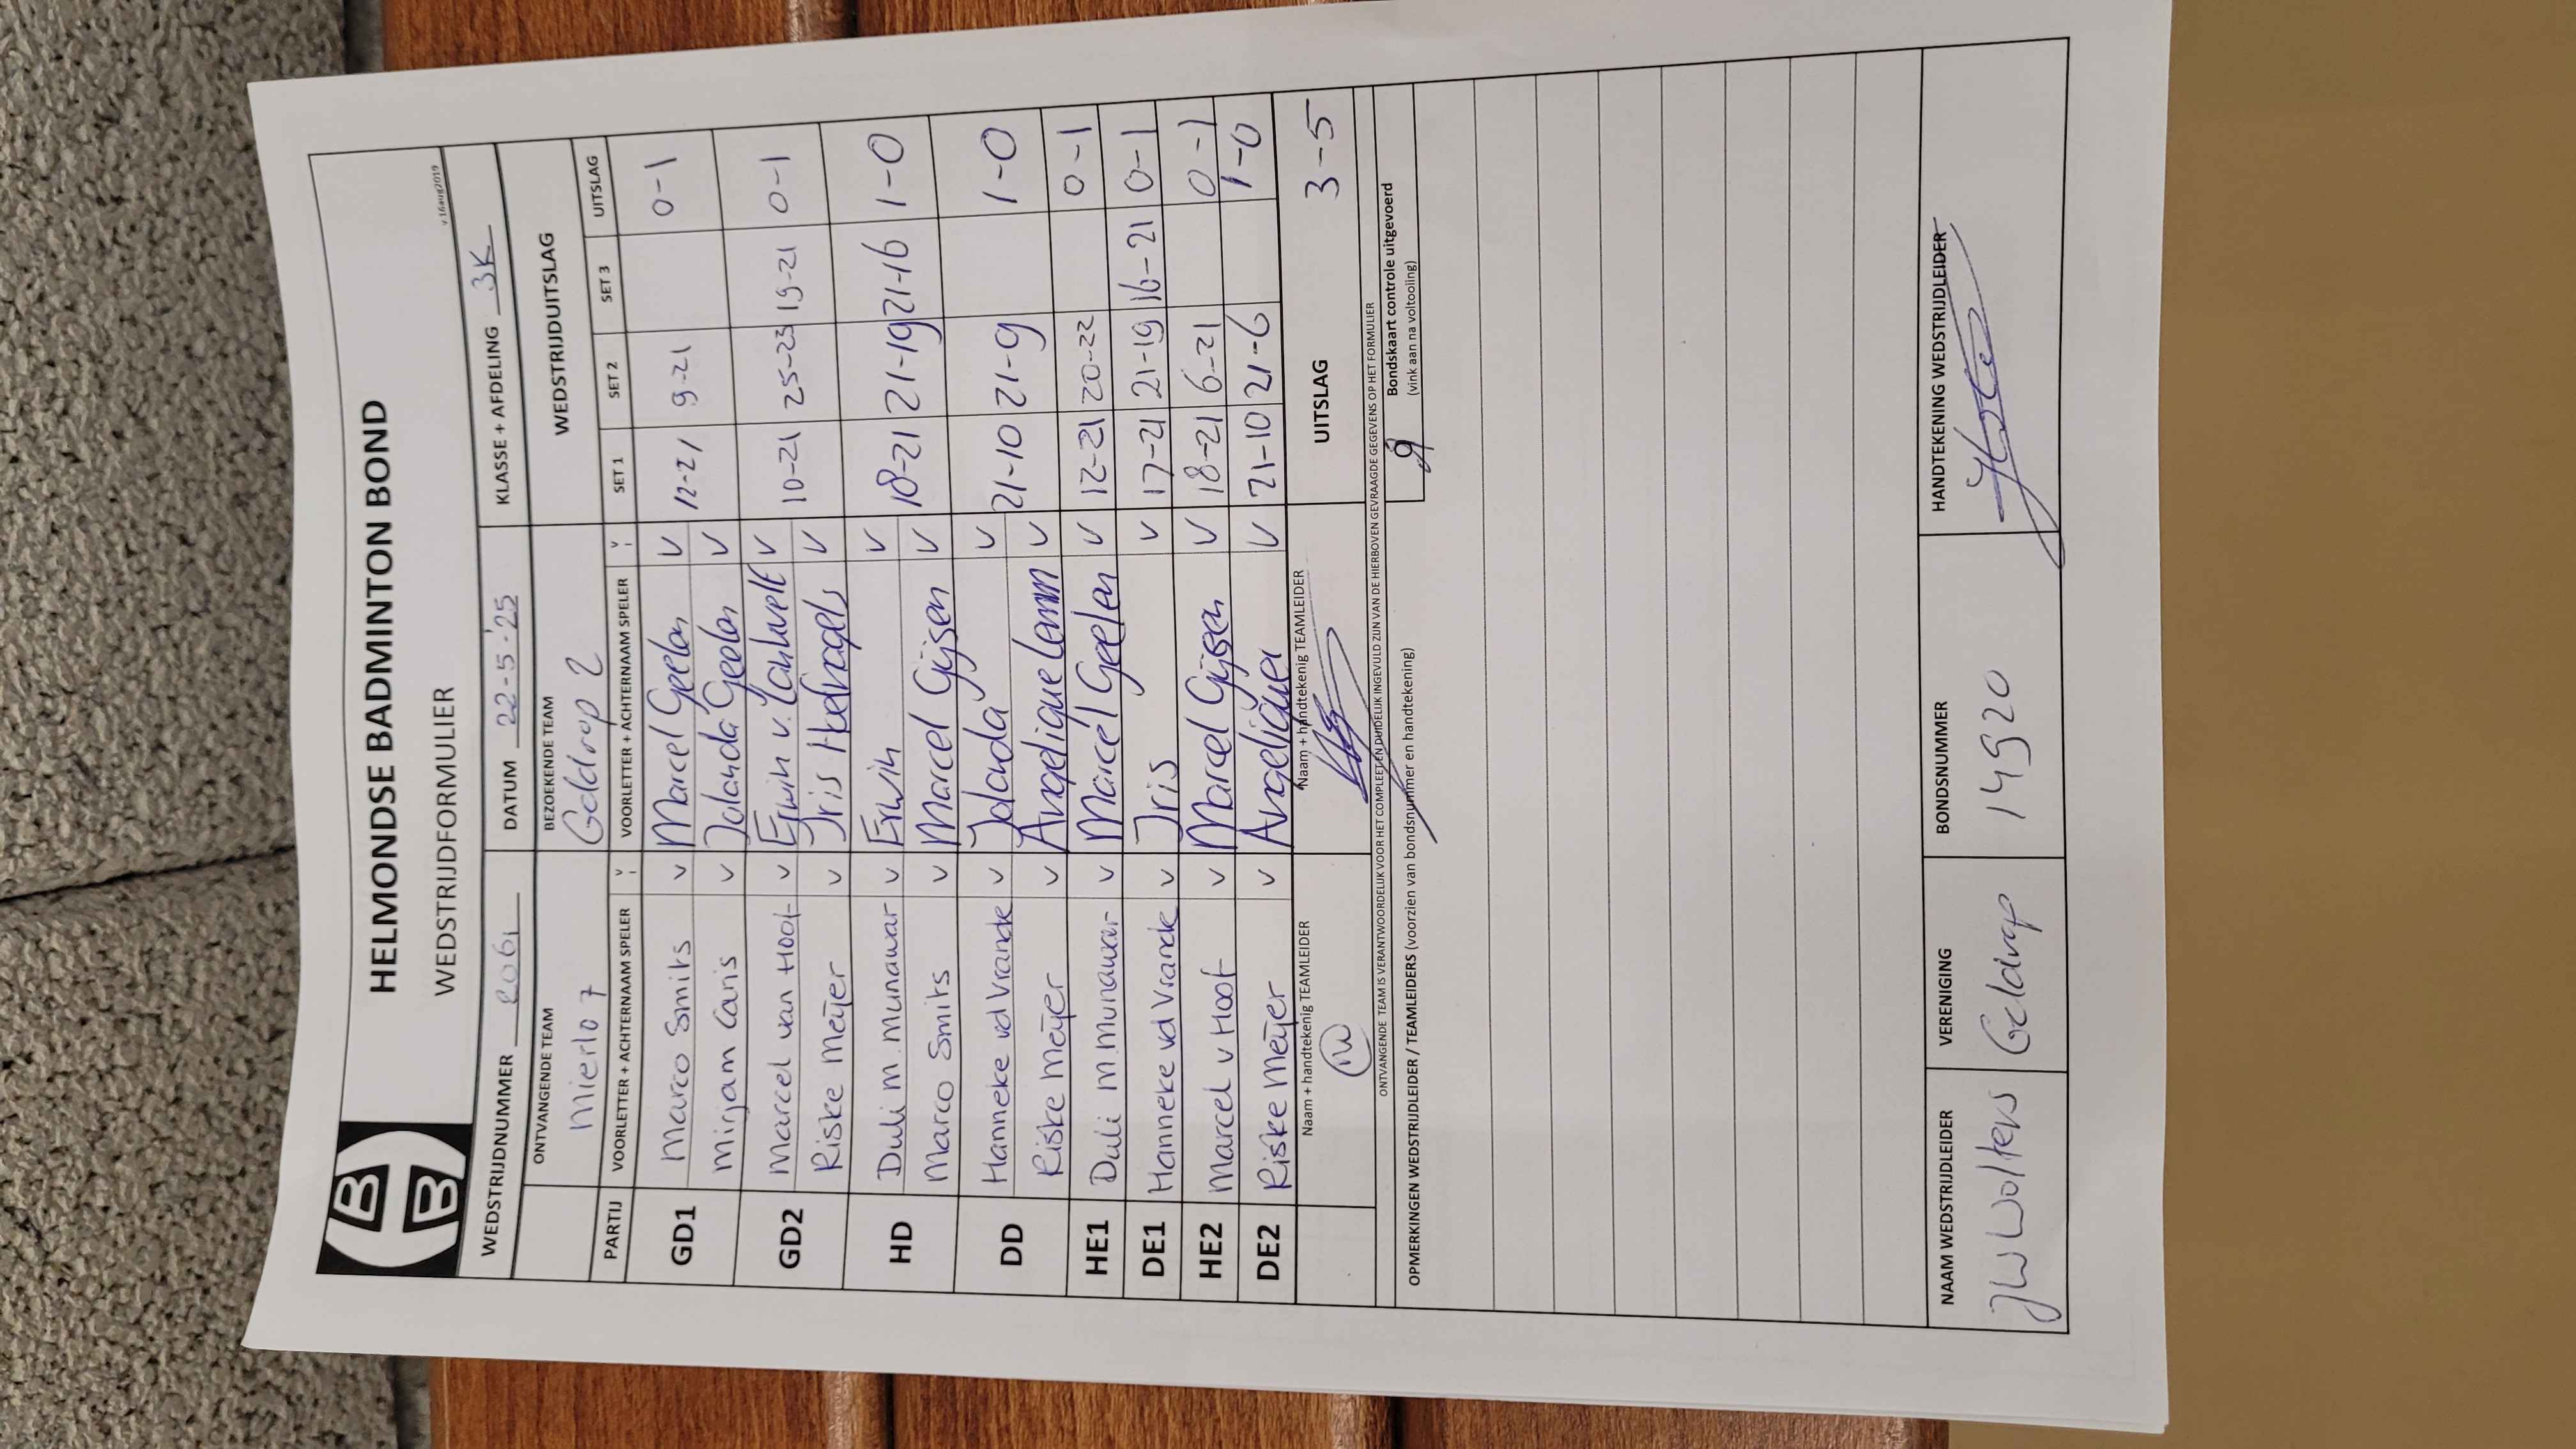 HELMONDSE BADMINTON BOND
WEDSTRIJDFORMULIER
v 16aug2019
WEDSTRIJDNUMMER 8061 DATUM 22-5-'25 KLASSE + AFDELING 3K
ONTVANGENDE TEAM BEZOEKENDE TEAM WEDSTRIJDUITSLAG
Mierlo 7 Geldrop 2
PARTIJ VOORLETTER + ACHTERNAAM SPELER V VOORLETTER + ACHTERNAAM SPELER V SET 1 SET 2 SET 3 UITSLAG
GD1 Marco Smits v Marcel Geelen v 12-21 9-21 0-1
Mirjam Caris v Jolanda Geelen v
GD2 Marcel van Hoof v Erwin v. v 10-21 25-23 19-21 0-1
Riske Meijer v Iris v
HD Duli M. Munawar v Erwin v 18-21 21-19 21-16 1-0
Marco Smits v Marcel Gijsen v
DD Hanneke vd Vrande v Jolanda v 21-10 21-9 1-0
Riske Meijer v Angelique v
HE1 Duli M. Munawar v Marcel Geelen v 12-21 20-22 0-1
DE1 Hanneke vd Vrande v Iris v 17-21 21-19 16-21 0-1
HE2 Marcel v Hoof v Marcel Gijsen v 18-21 6-21 0-1
DE2 Riske Meijer v v 21-10 21-6 1-0
Naam + handtekenig TEAMLEIDER Naam + handtekenig TEAMLEIDER UITSLAG 3-5
ONTVANGENDE TEAM IS VERANTWOORDELIJK VOOR HET COMPLEET EN DUIDELIJK INGEVULD ZIJN VAN DE HIERBOVEN GEVRAAGDE GEGEVENS OP HET FORMULIER
Bondskaart controle uitgevoerd
(vink aan na voltooiing)
OPMERKINGEN WEDSTRIJDLEIDER / TEAMLEIDERS (voorzien van bondsnummer en handtekening)
NAAM WEDSTRIJDLEIDER VERENIGING BONDSNUMMER HANDTEKENING WEDSTRIJDLEIDER
JW Wolters Geldrop 14920